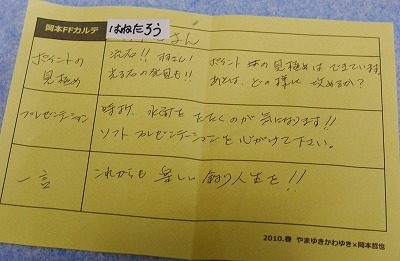 岡本FFカルテ
はねだろう さん
ポイントの
見極め
流石!!
光る石の発見も!!
ポイント 場の見極めは出来ています。
あとは、どの様に攻めるか?
プレゼンテーション
時折、水面をたたくのが気になります!!
ソフトプレゼンテーションを心がけて下さい。
一言
これからも楽しい釣り人生を!!
2010.春 やまゆきかわゆき×岡本哲也